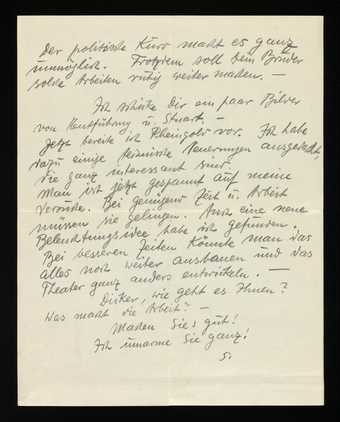 Der politische Kurs macht es ganz
unmöglich. Trotzdem soll kein Bruder
solche Arbeiten ruhig weiter machen. —
Ich schicke Dir ein paar Bilder
von Entführung u. Stuart. —
Jetzt bereite ich Rheingold vor. Ich habe
dazu einige technische Neuerungen ausgedacht,
die ganz interessant sind.
Man ist jetzt gespannt auf meine
Versuche. Bei genügend Zeit u. Arbeit
müssen sie gelingen. Auch eine neue
Beleuchtungsidee habe ich gefunden.
Bei besseren Zeiten könnte man das
alles noch weiter ausbauen und das
Theater ganz anders entwickeln. —
Dicker, wie geht es Ihnen?
Was macht die Arbeit? —
Machen Sie's gut!
Ich umarme Sie ganz!
S.